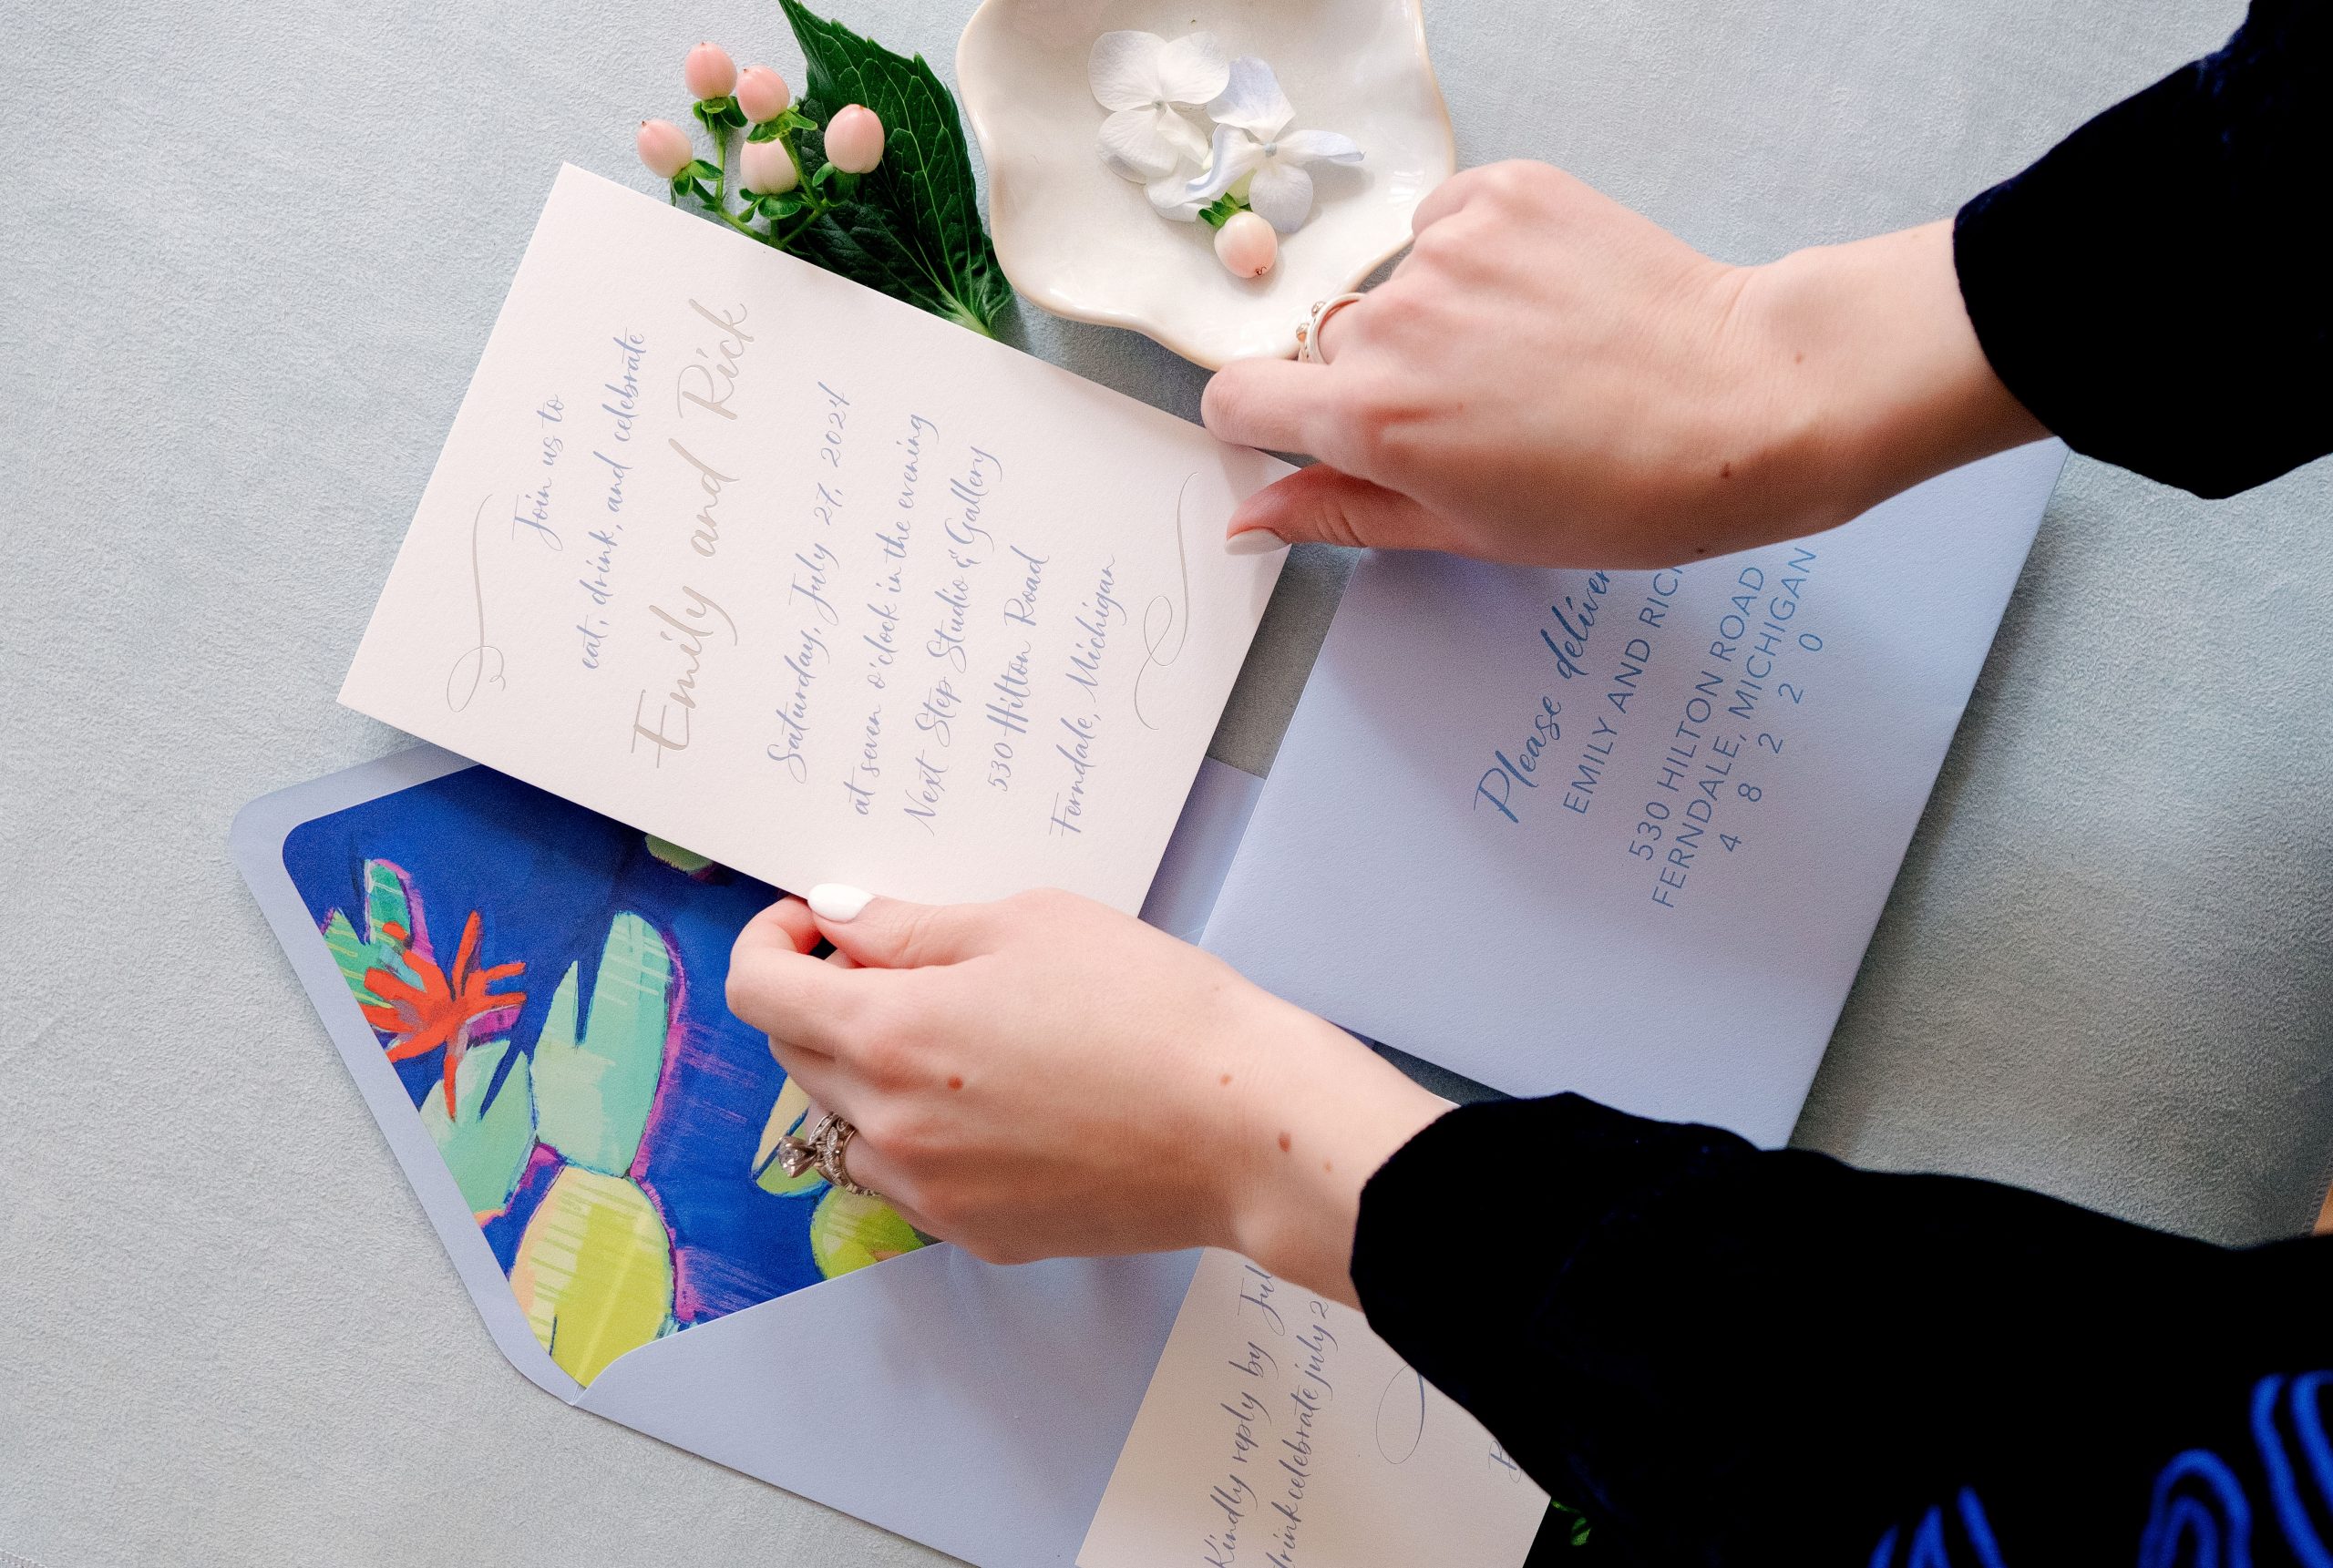 Join us to
eat, drink, and celebrate
Emily and Rick
Saturday, July 27, 2024
at seven o'clock in the evening
Next Step Studio & Gallery
530 Hilton Road
Ferndale, Michigan
Please deliver
EMILY AND RICK
530 HILTON ROAD
FERNDALE, MICHIGAN
4 8 2 2 0
Kindly reply by
drinkcelebratejuly2